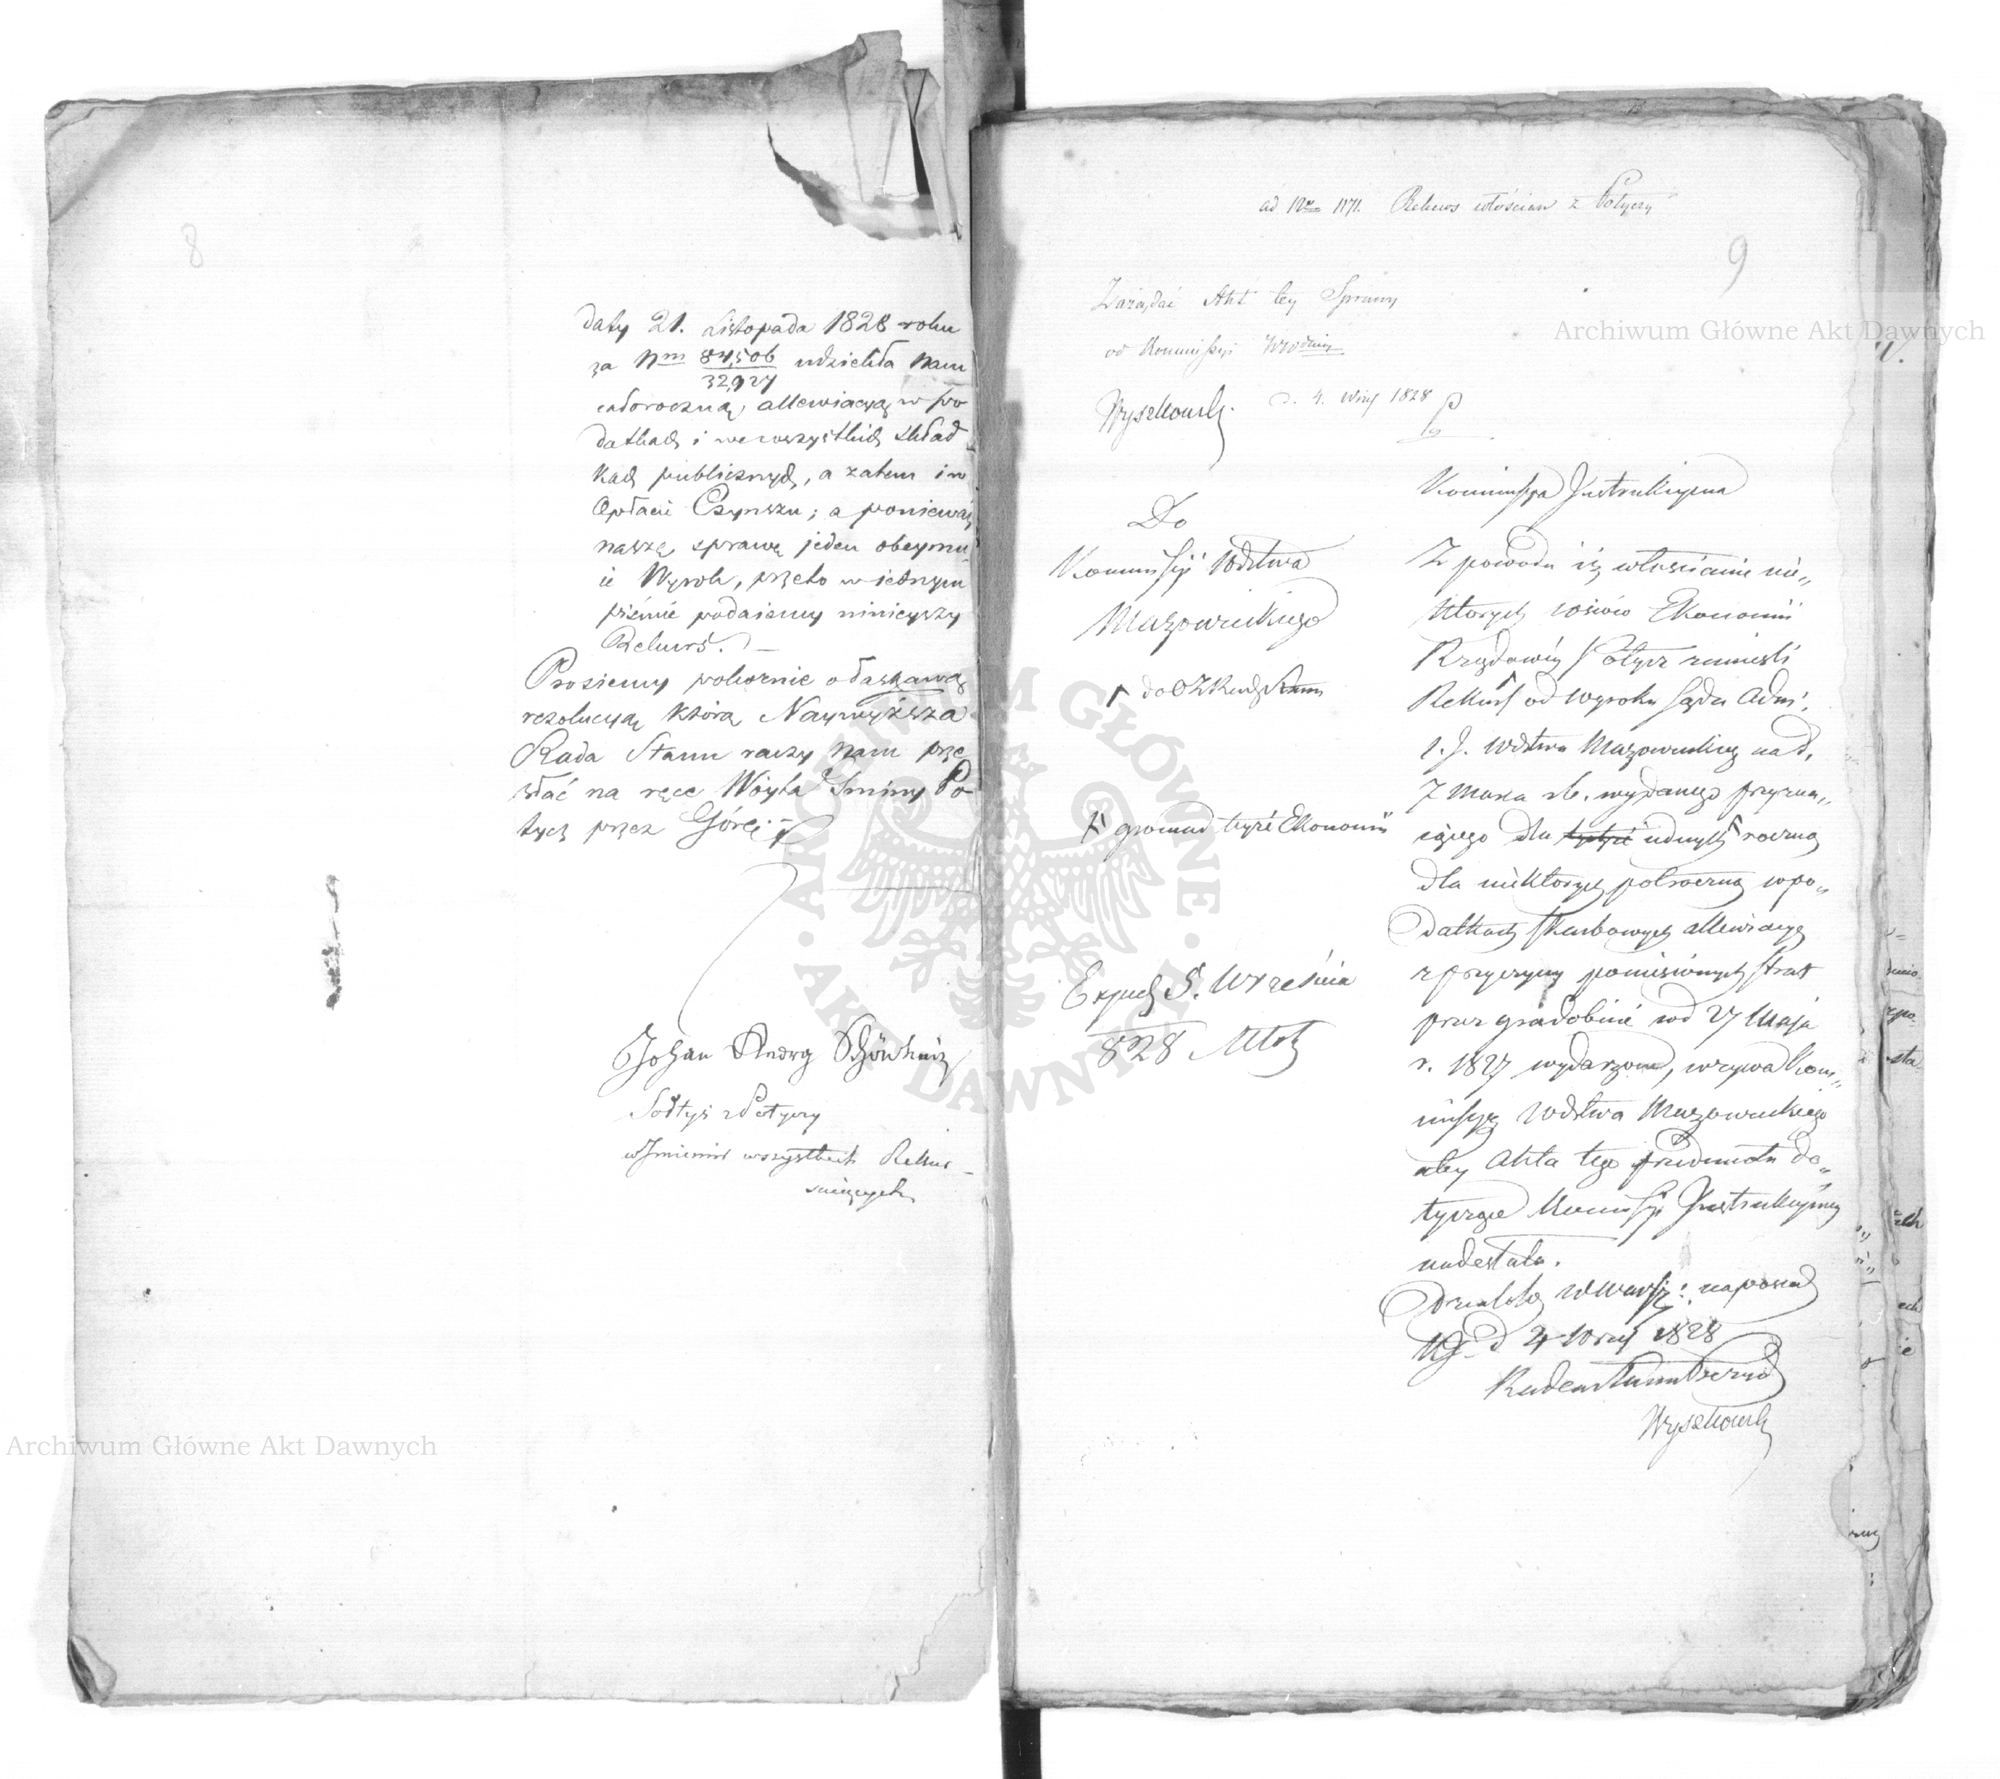 8
daty 21. Listopada 1828 roku
za Nrm 84,506 udzieliła Nam
32,927
całoroczną allewiacyą w po
datkach i we wszystkich skład
kach publicznych, a zatem i w
Opłacie Czynszu; a ponieważ
naszą sprawę jeden obeymu-
ie Wyrok, przeto w iednym
piśmie podaiemy ninieyszy
Rekurs. —
Prosiemy pokornie o łaskawą
rezolucyą którą Naywyższa
Rada Stanu raczy Nam prze
słać na ręce Wóyta Gminy Po
tycz przez Górę.
Johan Andrg
Sołtys z Potyczy
w Imieniu wszystkich Rekur-
suiących
ad Nrm 1171. Rekurs włościan z Potyczy
9
Zażądać Akt tey Sprawy
od Kommissyi Wdzkiey
d. 4. Wrześ 1828
Wyszkowski
Do
Kommissyi Wdztwa
Mazowieckiego
do
gromad teyże Ekonomii
Exped 5. Września
828
Kommissya Instrukcyjna
Z powodu iż włościanie nie„
których wsiów Ekonomii
Rządowey Potycz zanieśli
Rekurs od wyroku Sądu Adm:
1. J. Wdztwa Mazowieckieg na d.
7 Marca r.b. wydanego przyzna„
iącego dla tychże iednych roczną
dla niektórych półroczną w po„
datkach skarbowych allewiacyą
z przyczyny poniesionych strat
przez gradobicie pod 27 Maja
r. 1827 wydarzone, wzywa Kom„
missyę Wdztwa Mazowieckiego
aby Akta tego przedmiotu do„
tyczące Kommissyi Instrukcyjney
nadesłała.
Działo się w Warsz: na posied
d 4 Wrześ 1828
Radca Stanu Prezyd
Wyszkowski
Archiwum Główne Akt Dawnych
Archiwum Główne Akt Dawnych
ARCHIWUM GŁÓWNE · AKT DAWNYCH ·